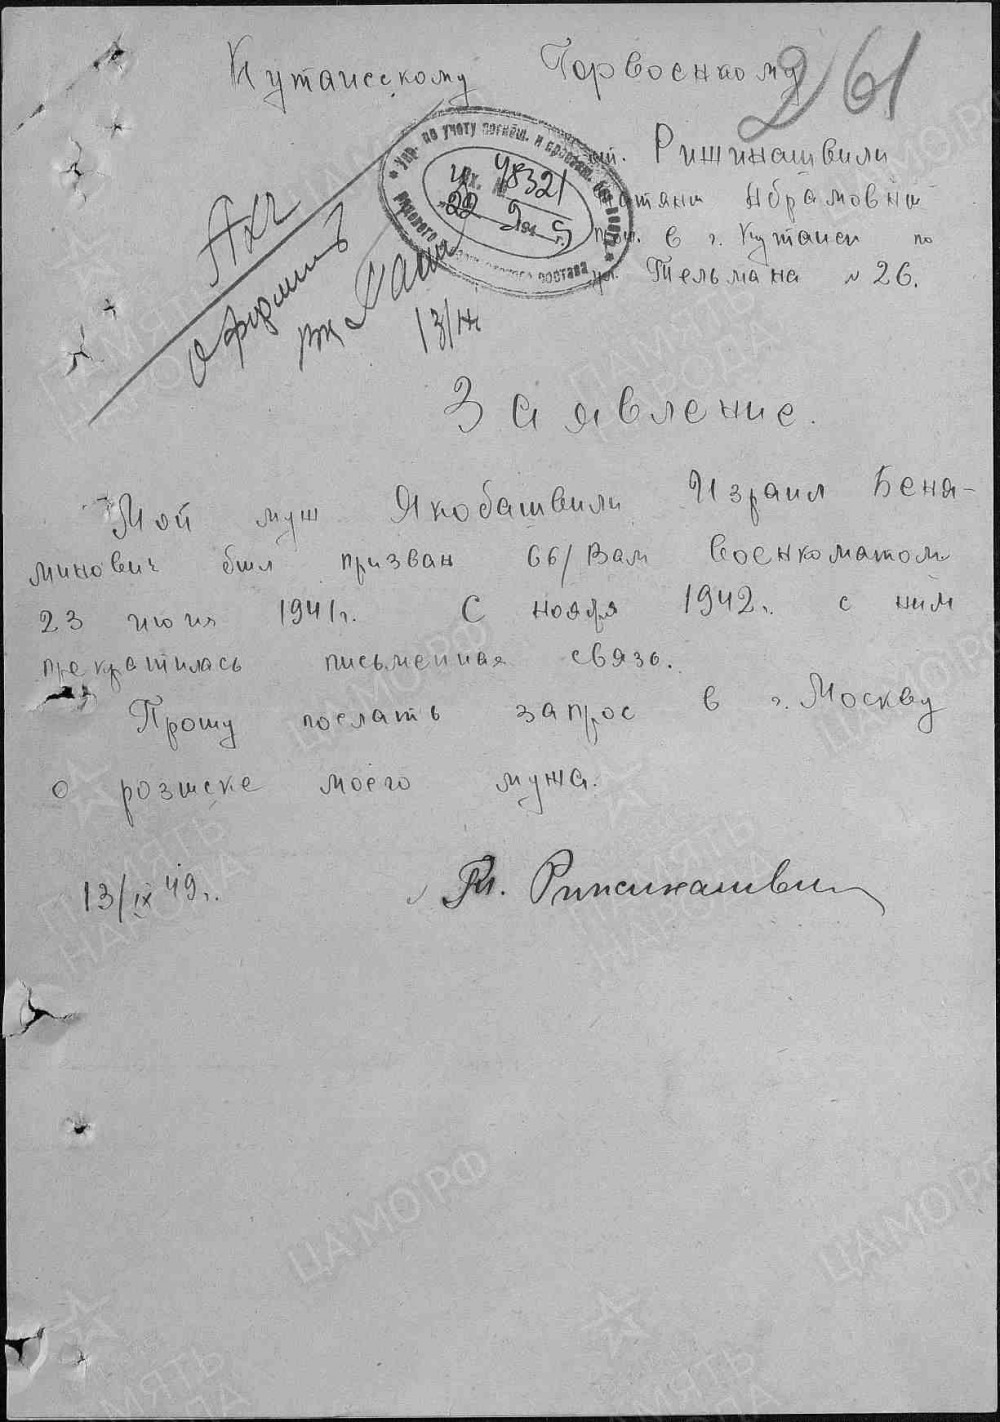 Кутаисскому Горвоенкому
261
гр. Ришинашвили
Абрамовны
прож. в г. Кутаиси по
ул. Тельмана № 26.
Упр. по учету погибш. и пропавш. без вести
рядового состава
Вх. № 48321
22 194 г.
13/IX
Заявление.
Мой муж Якобашвили Израил Беня-
минович был призван Вам военкоматом
23 июня 1941г. С ноября 1942г. с ним
прекратилась письменная связь.
Прошу послать запрос в г. Москву
о розыске моего мужа.
13/IX 49г.
Ришинашвили
ПАМЯТЬ НАРОДА
ЦАМО.РФ